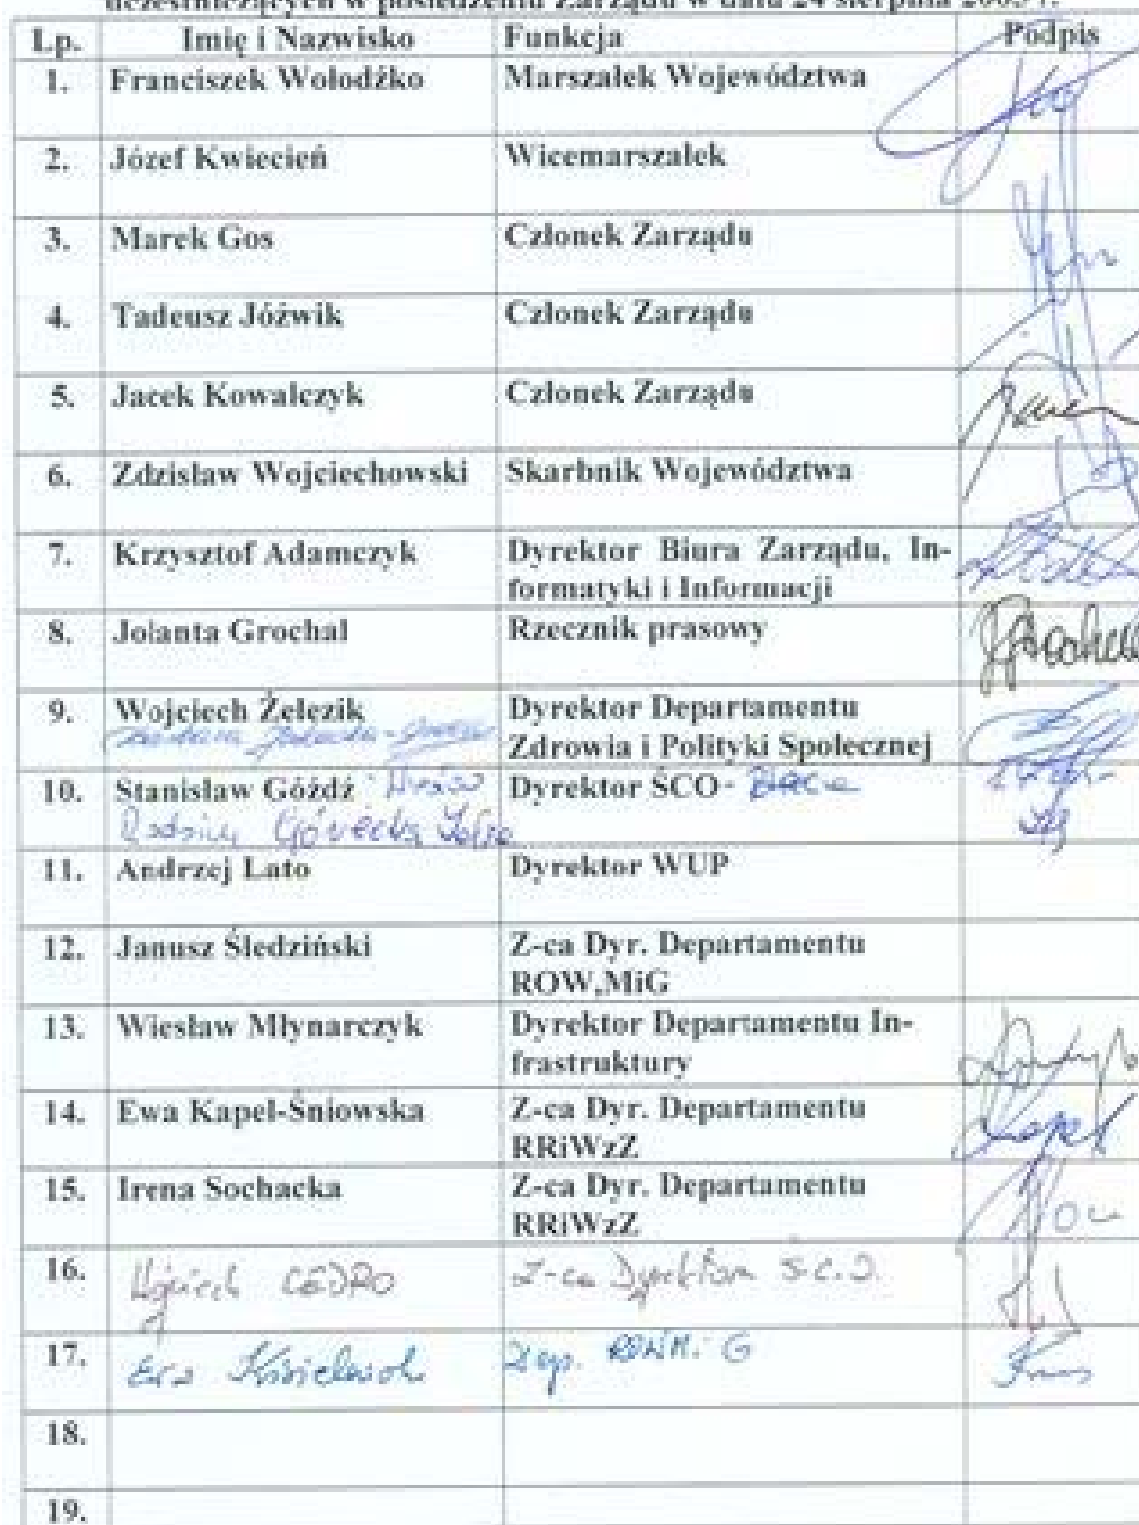 uczestniczących w posiedzeniu Zarządu w dniu 24 sierpnia
Lp. Imię i Nazwisko Funkcja Podpis
1. Franciszek Wołodźko Marszałek Województwa
2. Józef Kwiecień Wicemarszałek
3. Marek Gos Członek Zarządu
4. Tadeusz Jóźwik Członek Zarządu
5. Jacek Kowalczyk Członek Zarządu
6. Zdzisław Wojciechowski Skarbnik Województwa
7. Krzysztof Adamczyk Dyrektor Biura Zarządu, In-
formatyki i Informacji
8. Jolanta Grochal Rzecznik prasowy
9. Wojciech Żelezik Dyrektor Departamentu
Zdrowia i Polityki Społecznej
10. Stanisław Góźdź Dyrektor ŚCO-
Górecka
11. Andrzej Lato Dyrektor WUP
12. Janusz Śledziński Z-ca Dyr. Departamentu
ROW,MiG
13. Wiesław Młynarczyk Dyrektor Departamentu In-
frastruktury
14. Ewa Kapel-Śniowska Z-ca Dyr. Departamentu
RRiWzZ
15. Irena Sochacka Z-ca Dyr. Departamentu
RRiWzZ
16. Wojciech CEDRO Z-ca Dyrektora
17. Ewa
18.
19.